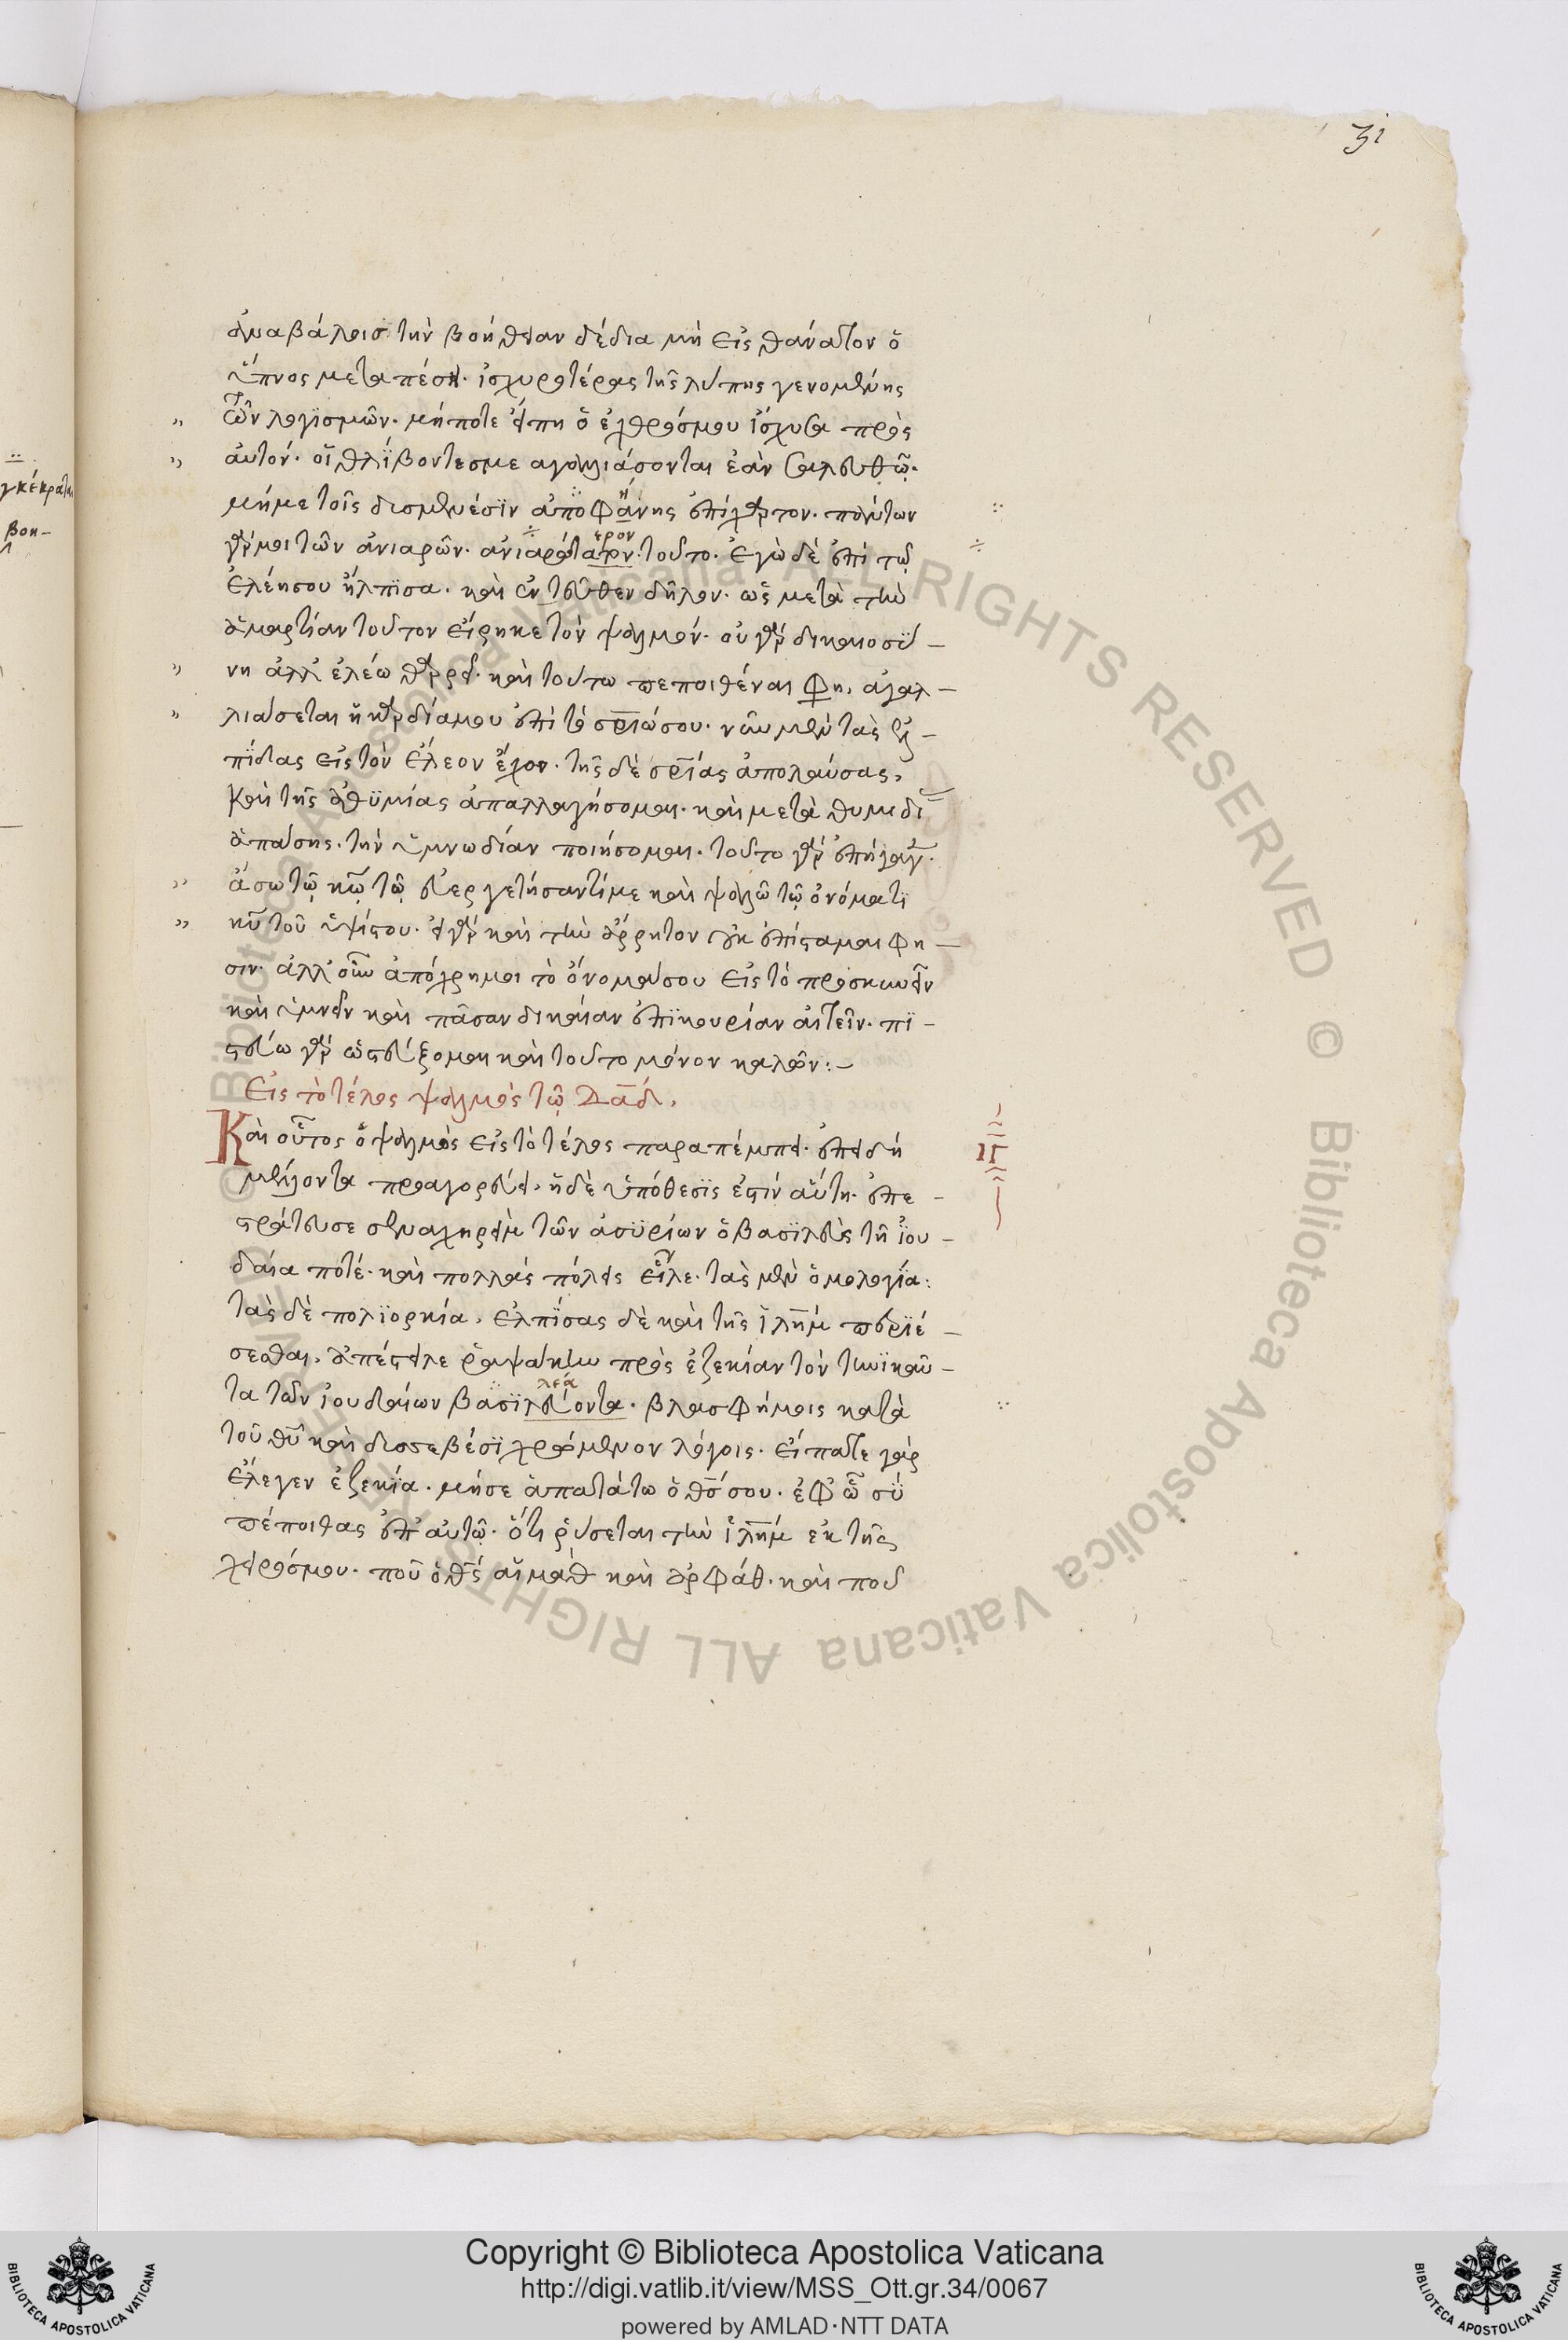 31
ἀναβάλοις τὴν βοήθειαν δέδια μὴ εἰς θάνατον ὁ
ὕπνος μεταπέσῃ· ἰσχυροτέρας τῆς λύπης γενομένης
τῶν λογϊσμῶν· μήποτε εἴπη ὁ ἐχθρόσμου ἴσχυσα πρὸς
ἀυτόν· οἱ θλίβοντεσμε αγαλλιάσονται ἐὰν σαλευθῶ·
μήμε τοῖς δισμενέσϊν αποφάνης ἐπίχαρτον· πάντων
γάρμοι τῶν ἀνιαρῶν· ἀνιαρότατον τοῦτο· Ἐγὼ δὲ ἐπὶ τῷ
ερον
ἐλέησου ἤλπϊσα· καὶ ἐντεῦθεν δῆλον· ὡς μετὰ τὴν
ἁμαρτίαν τοῦτον εἴρηκε τὸν ψαλμόν· οὐ γὰρ δικαιοσύ –
νη ἀλλ' ἐλέω θαρρεῖ· καὶ τούτω πεποιθέναι φη, ἀγαλ –
λιάσεται ἡ καρδίαμου ἐπὶ τῷ σρϊώσου· νῦν μὲν τὰς ἐλ –
πΐδας εἰς τὸν ἔλεον ἔχον· τῆς δὲ σρίας ἀπολαύσας,
καὶ τῆς ἀθϋμίας ἀπαλλαγήσομαι· καὶ μετὰ θυμιδι
ἁπάσης· τὴν ὑμνωδίαν ποιήσομαι· τοῦτο γὰρ ἐπήγαγ·
ἄσω τῷ κω τῷ εὐεργετήσαντίμε καὶ ψαλῶ τῷ ὀνόματϊ
κυ τοῦ ὑψίστου· εἰ γὰρ καὶ τὴν ἄρρητον οὐκ ἐπίσταμαι φη –
σιν· ἀλλ' οὖν ἀπόχρημοι τὸ ὄνομάσου εἰς τὸ προσκυνεῖν
καὶ ὑμνεῖν καὶ πᾶσαν δικαίαν ἐπϊκουρίαν αἰτεῖν· πϊ –
στεύω γὰρ ὡς τεύξομαι καὶ τοῦτο μόνον καλῶν:–
Εἰς τὸ τέλος ψαλμὸς τῷ Δαδ,
Καὶ οὗτος ὁ ψαλμὸς εἰς τὸ τέλος παραπέμπει· ἐπειδὴ
ιγ
μέλλοντα προαγορεύει· ἡ δὲ ὑπόθεσϊς ἐστὶν αὕτη· ἐπε –
στράτευσε σεναχηρεὶμ τῶν ἀσϋρίων ὁ βασϊλεὺς τῆ ϊου –
δαία ποτέ· καὶ πολλὰς πόλεις εἷλε· τὰς μὲν ὁμολογΐα:
τὰς δὲ πολϊορκία, ἐλπΐσας δὲ καὶ τῆς ϊλημ περϊέ –
σεσθαι, ἀπέστειλε ῥαψάκην πρὸς ἐζεκίαν τὸν τηνϊκαῦ –
τα τῶν ἰουδαίων βασϊλεύοντα· βλασφήμοις κατὰ
λέα
τοῦ θυ καὶ δισσεβέσϊ χρώμενον λόγοις· εἴπατε γὰρ
ἔλεγεν ἐζεκΐα· μήσε ἀπατάτω ὁ θσ σου· ἐφ' ᾧ σὺ
πέποιθας ἐπ' αὐτῷ· ὅτι ῥύσεται τὴν ϊλημ ἐκ τῆς
χειρόσμου· ποῦ ὁ θς αἰμαθ καὶ ἀρφάθ· καὶ ποῦ
Copyright © Biblioteca Apostolica Vaticana
http://digi.vatlib.it/view/MSS_Ott.gr.34/0067
powered by AMLAD·NTT DATA